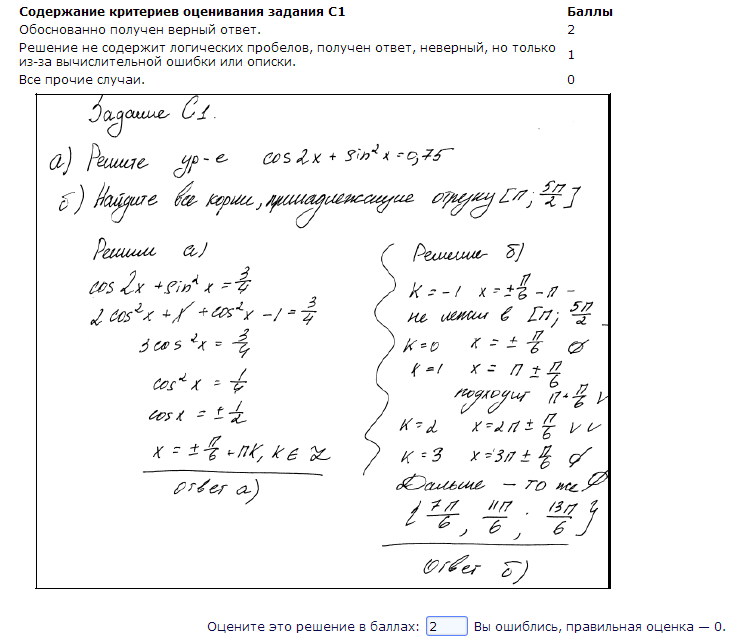 Содержание критериев оценивания задания С1 Баллы
Обоснованно получен верный ответ. 2
Решение не содержит логических пробелов, получен ответ, неверный, но только
из-за вычислительной ошибки или описки. 1
Все прочие случаи. 0
Задание С1.
а) Решите ур-е cos2x + sin²x = 0,75
б) Найдите все корни, принадлежащие отрезку [π; 5π/2]
Решим а)
cos 2x + sin² x = 3/4
2 cos²x + 1 + cos²x - 1 = 3/4
3cos²x = 3/4
cos²x = 1/4
cos x = ± 1/2
x = ± π/6 + πk, k ∈ Z
Ответ а)
Решение б)
K = -1 x = ± π/6 - π -
не лежат в [π; 5π/2]
K = 0 x = ± π/6 ∅
K = 1 x = π ± π/6
подходит π + π/6 V
K = 2 x = 2π ± π/6 V V
K = 3 x = 3π ± π/6 ∅
Дальше — то же ∅
{ 7π/6, 11π/6, 13π/6 }
Ответ б)
Оцените это решение в баллах: 2 Вы ошиблись, правильная оценка — 0.